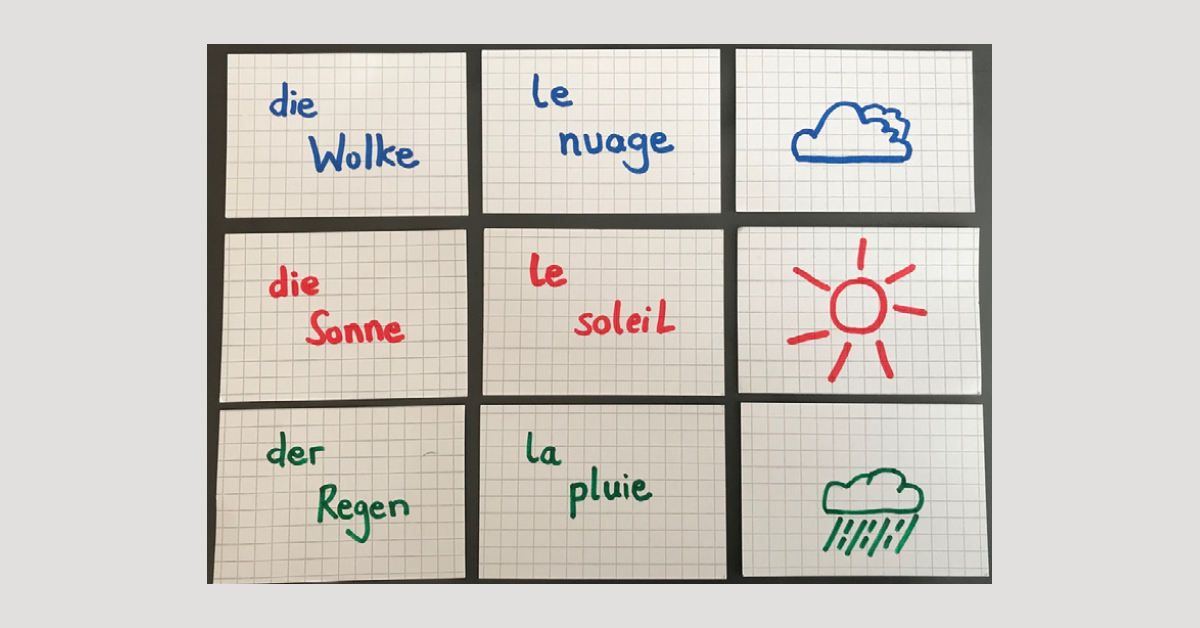 die
Wolke
le
nuage
die
Sonne
le
soleil
der
Regen
la
pluie